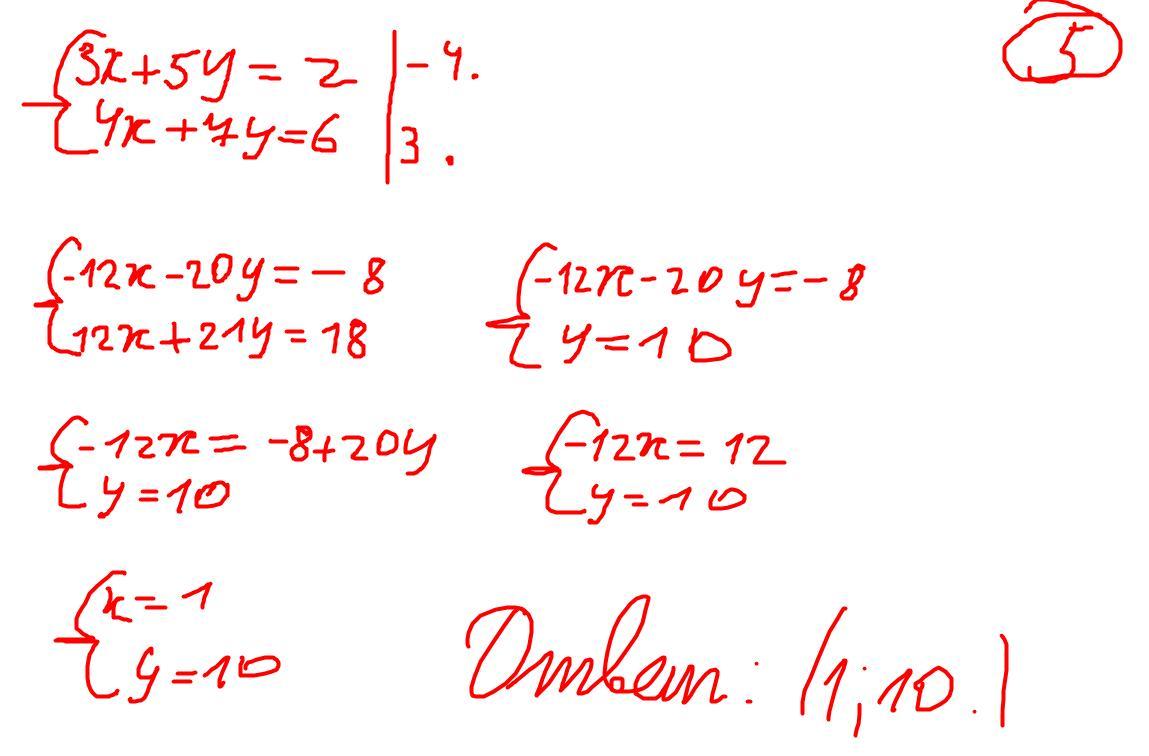 5
3x+5y=2 | -4.
4x+7y=6 | 3.
-12x-20y=-8
12x+21y=18
-12x-20y=-8
y=10
-12x=-8+20y
y=10
-12x=12
y=10
x=1
y=10
Ответ: (1;10.)